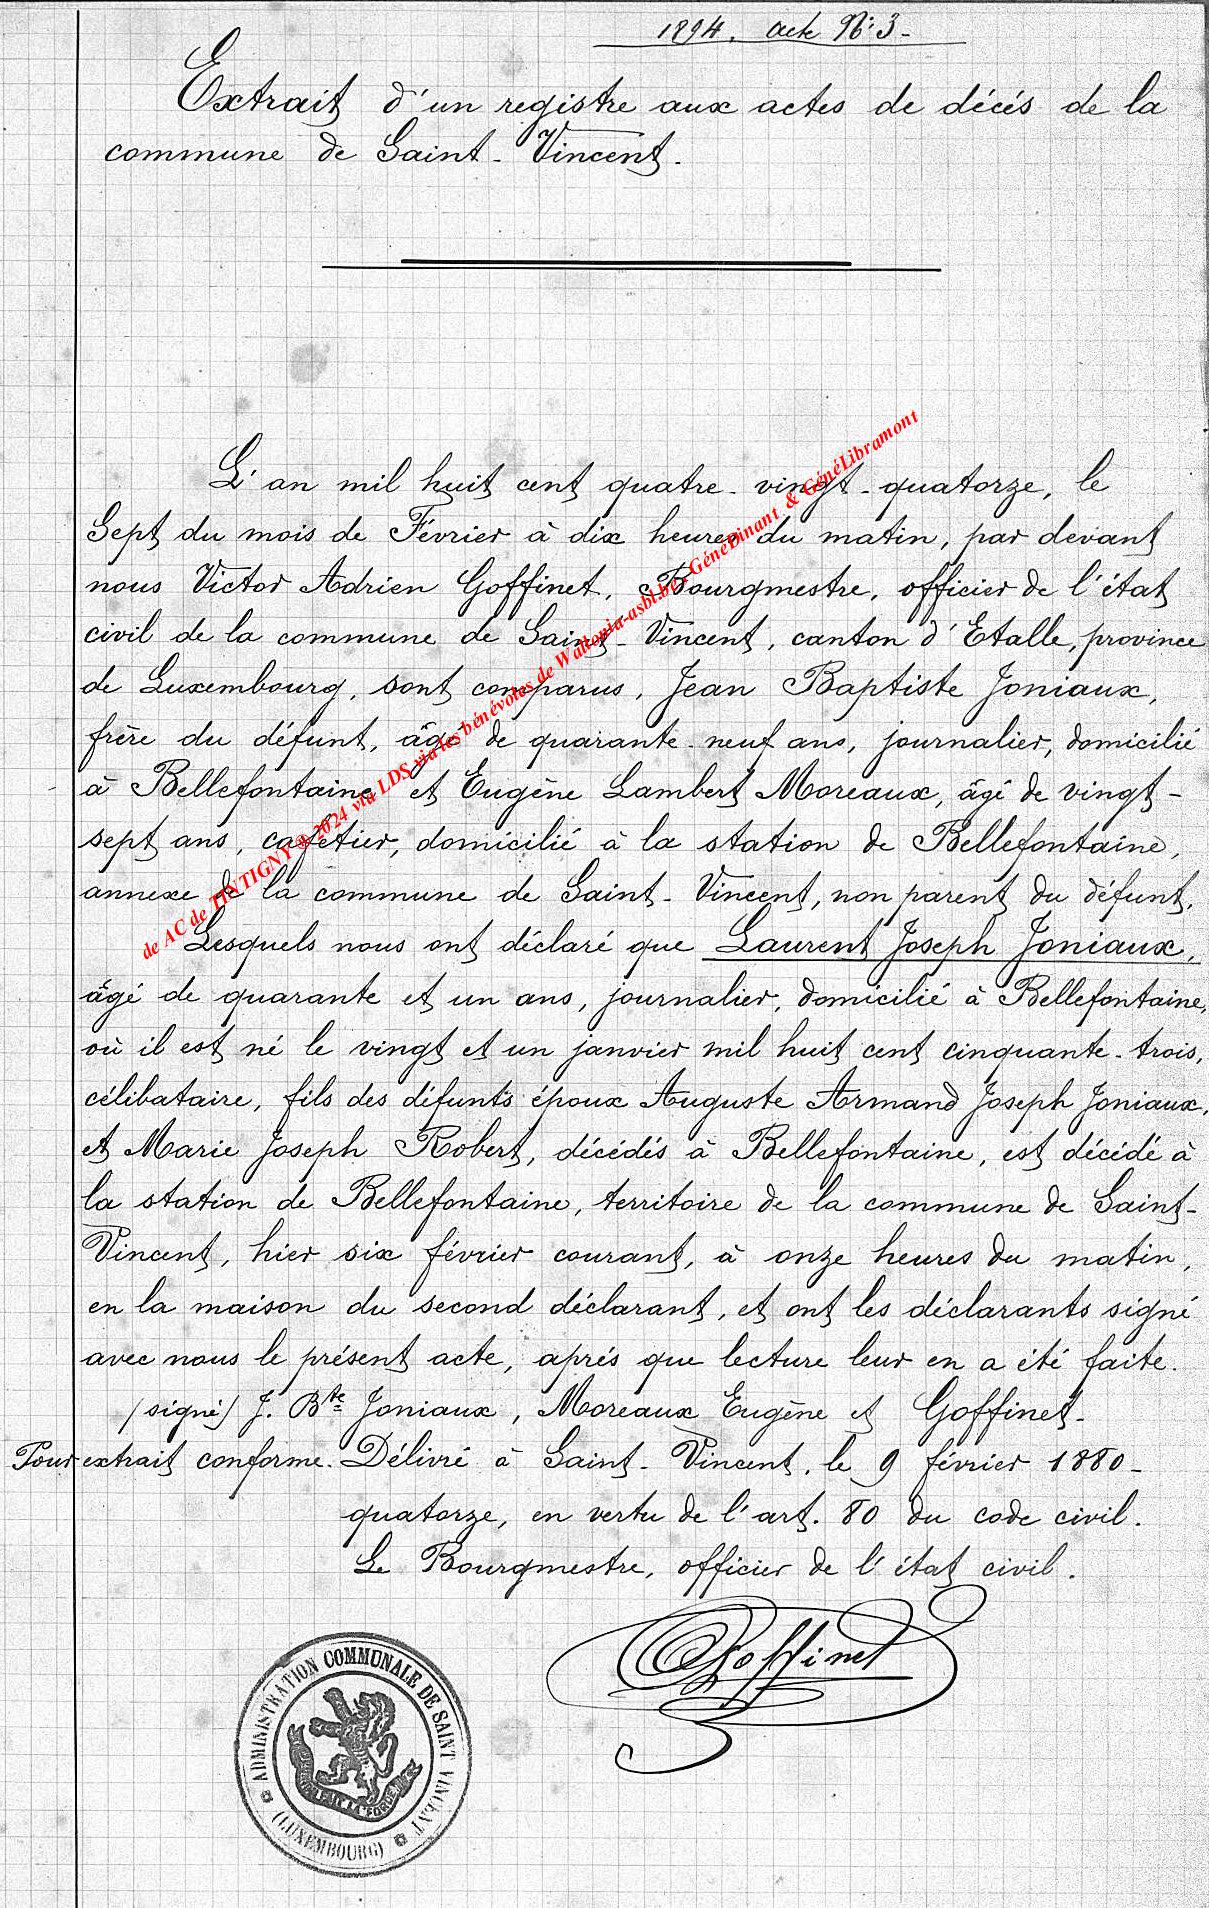 1894. Acte N° 3-
Extrait d'un registre aux actes de décès de la
commune de Saint-Vincent.
L'an mil huit cent quatre-vingt-quatorze, le
Sept du mois de Février à dix heures du matin, par devant
nous Victor Adrien Goffinet, Bourgmestre, officier de l'état
civil de la commune de Saint-Vincent, canton d'Etalle, province
de Luxembourg, sont comparus, Jean Baptiste Joniaux,
frère du défunt, âgé de quarante-neuf ans, journalier, domicilié
à Bellefontaine et Eugène Lambert Moreaux, âgé de vingt-
sept ans, cafetier, domicilié à la station de Bellefontaine,
annexe de la commune de Saint-Vincent, non parent du défunt.
Lesquels nous ont déclaré que Laurent Joseph Joniaux,
âgé de quarante et un ans, journalier, domicilié à Bellefontaine,
où il est né le vingt et un janvier mil huit cent cinquante-trois,
célibataire, fils des défunts époux Auguste Armand Joseph Joniaux,
et Marie Joseph Robert, décédés à Bellefontaine, est décédé à
la station de Bellefontaine, territoire de la commune de Saint-
Vincent, hier six février courant, à onze heures du matin,
en la maison du second déclarant, et ont les déclarants signé
avec nous le présent acte, après que lecture leur en a été faite.
(signé) J. Bte Joniaux, Moreaux Eugène et Goffinet-
Pour extrait conforme. Délivré à Saint-Vincent, le 9 février 1880-
quatorze, en vertu de l'art. 80 du code civil.
Le Bourgmestre, officier de l'état civil.
Goffinet
ADMINISTRATION COMMUNALE DE SAINT VINCENT
(LUXEMBOURG)
de AC de TINTIGNY ® 2024 via LDS via les bénévoles de Wallonia-asbl.be, GénéDinant & GénéLibramont